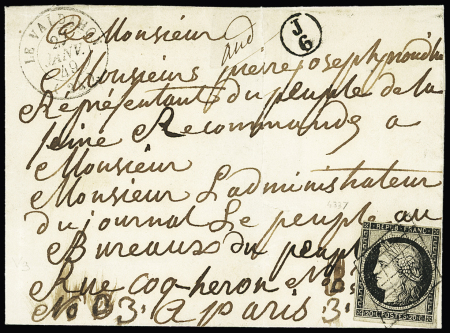 LE VALD
JANV.
49
J
6
A Monsieur
Monsieurs pierre joseph proudhon
Représentant du peuple de la
seine Recommandé a
Monsieur
Monsieur L'administrateur
du journal Le peuple au
Bureaux du peuple
Rue coq heron N
No 3 a paris 3
4337
REPUB. FRANC.
20 C. POSTES 20 C.